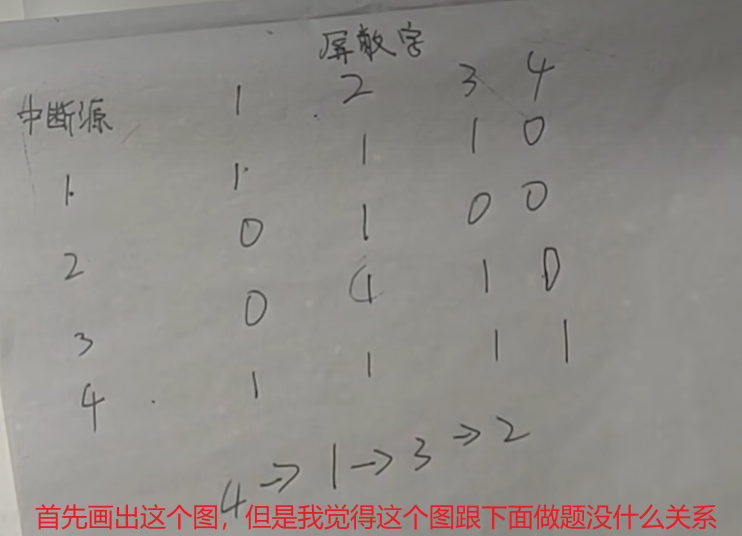 屏蔽字
中断源 1 2 3 4
1 1 1 1 0
2 0 1 0 0
3 0 1 0
4 1 1 1 1
4→1→3→2
首先画出这个图，但是我觉得这个图跟下面做题没什么关系